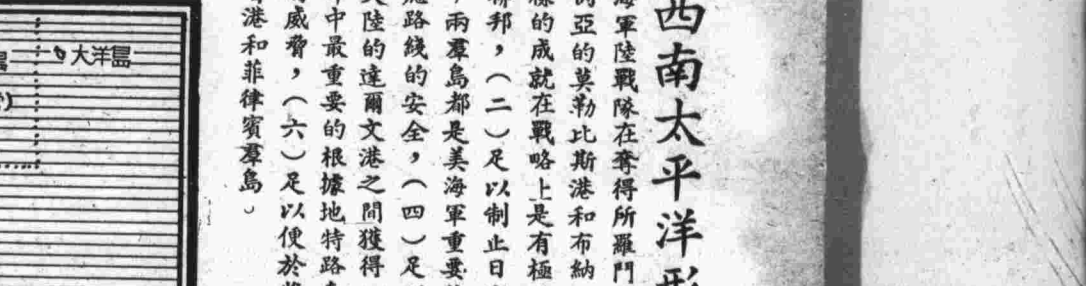 西南太平洋形
海軍陸戰隊在奪得所羅門
亞的莫勒比斯港和布納
樣的成就在戰略上是有極
聯邦，（二）足以制止日
兩羣島都是美海軍重要
應路綫的安全，（四）足
大陸的達爾文港之間獲得
中最重要的根據地特路
威脅，（六）足以便於
港和菲律賓羣島。
大洋島